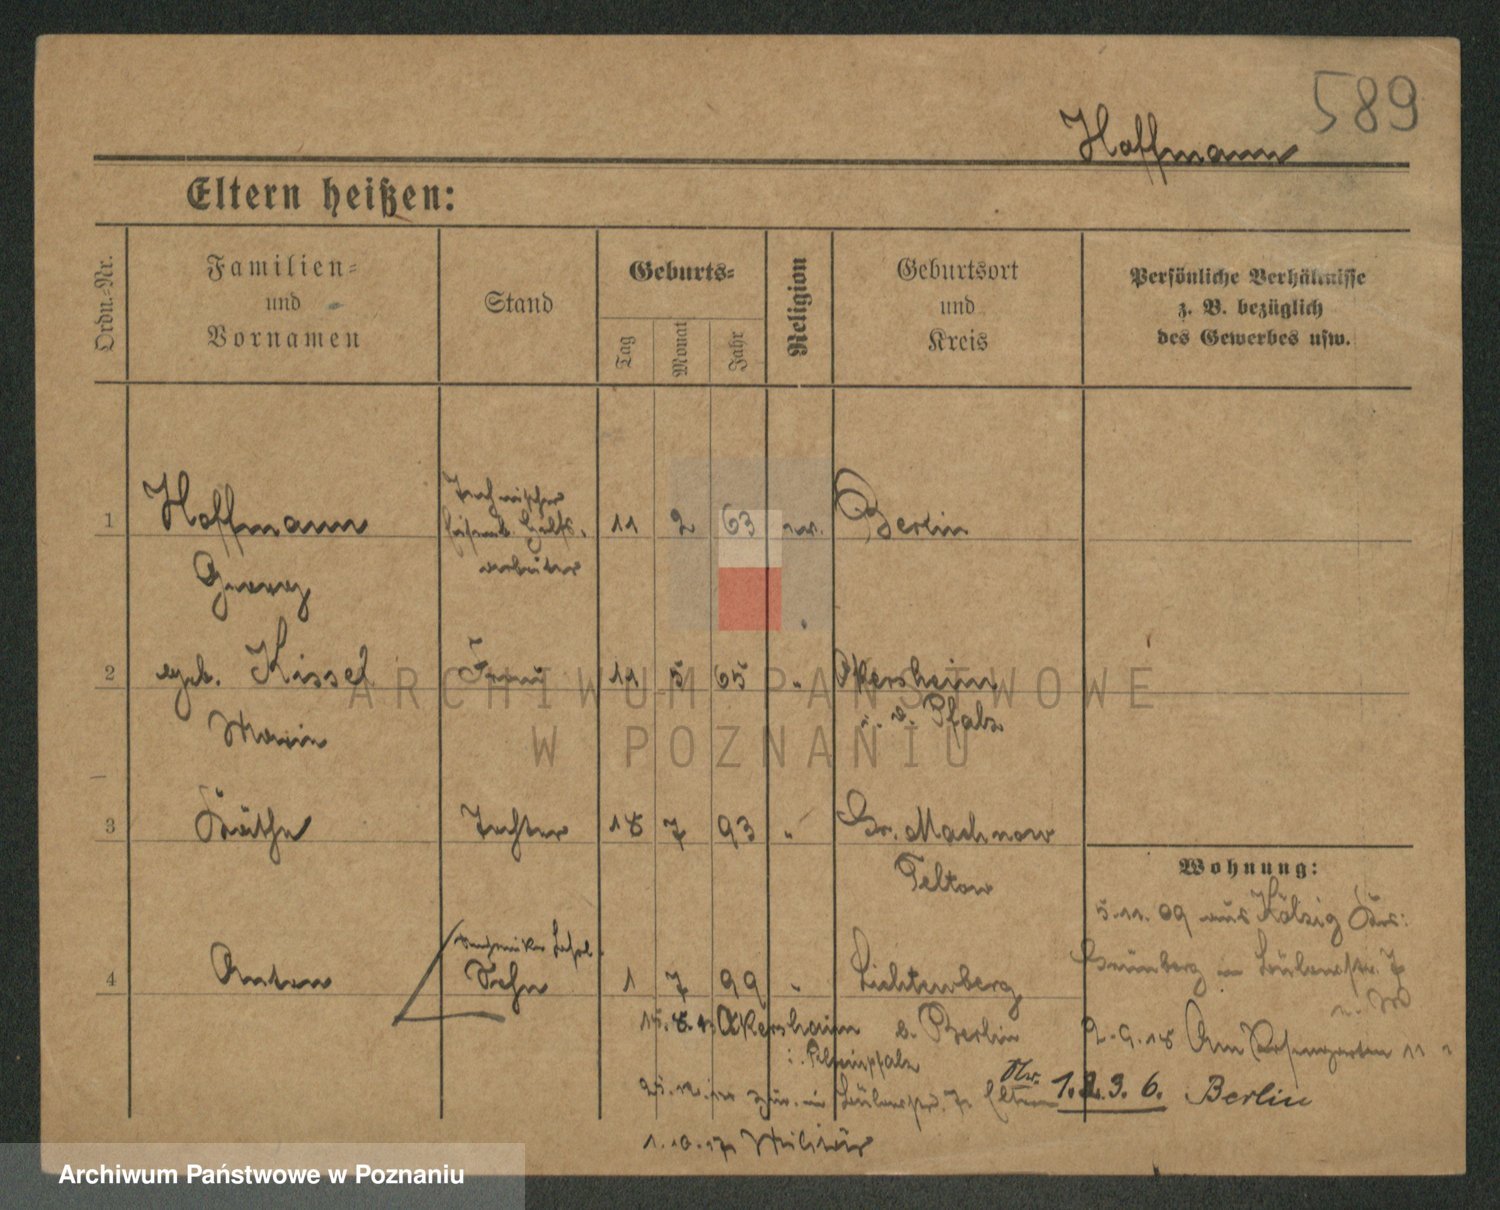 589
Hoffmann
Eltern heißen:
Ordn.-Nr.
Familien-
und
Vornamen
Stand
Geburts-
Tag
Monat
Jahr
Religion
Geburtsort
und
Kreis
Persönliche Verhältnisse
z. B. bezüglich
des Gewerbes usw.
1
Hoffmann
Georg
Technischer
Eisenb. Hülfs-
arbeiter
11 2 63 ev. Berlin
2
geb. Kissel
Marie
Frau
11 5 65 " Akersheim
i. d. Pfalz
3
Käthe
Tochter
18 7 93 " Gr. Machnow
Teltow
4
Anton
Techniker
Sohn
1 7 99 " Lichtenberg
b. Berlin
Akersheim
i. Rheinpfalz
Eltern
1.10.17 Militär
Wohnung:
5.11.09 aus Kölzig Krs:
Grünberg
2.9.18 Am Rosengarten 11
Nr. 1.2.3.6. Berlin
ARCHIWUM PAŃSTWOWE
W POZNANIU
Archiwum Państwowe w Poznaniu